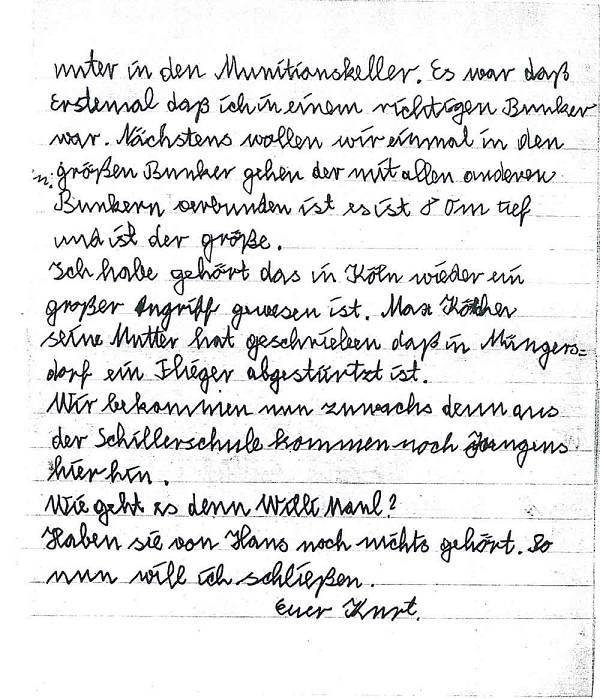 unter in den Munitionskeller. Es war daß
erstemal daß ich in einem richtigen Bunker
war. Nächstens wollen wir einmal in den
größen Bunker gehen der mit allen anderen
Bunkern verbunden ist es ist 80m tief
und ist der größe.
Ich habe gehört das in Köln wieder ein
großer Angriff gewesen ist. Max Köther
seine Mutter hat geschrieben daß in Müngers=
dorf ein Flieger abgestürtzt ist.
Wir bekommen nun zuwachs denn aus
der Schillerschule kommen noch Jungens
hier hin.
Wie geht es denn Willi Manl?
Haben sie von Hans noch nichts gehört. So
nun will ich schließen.
Euer Kurt.